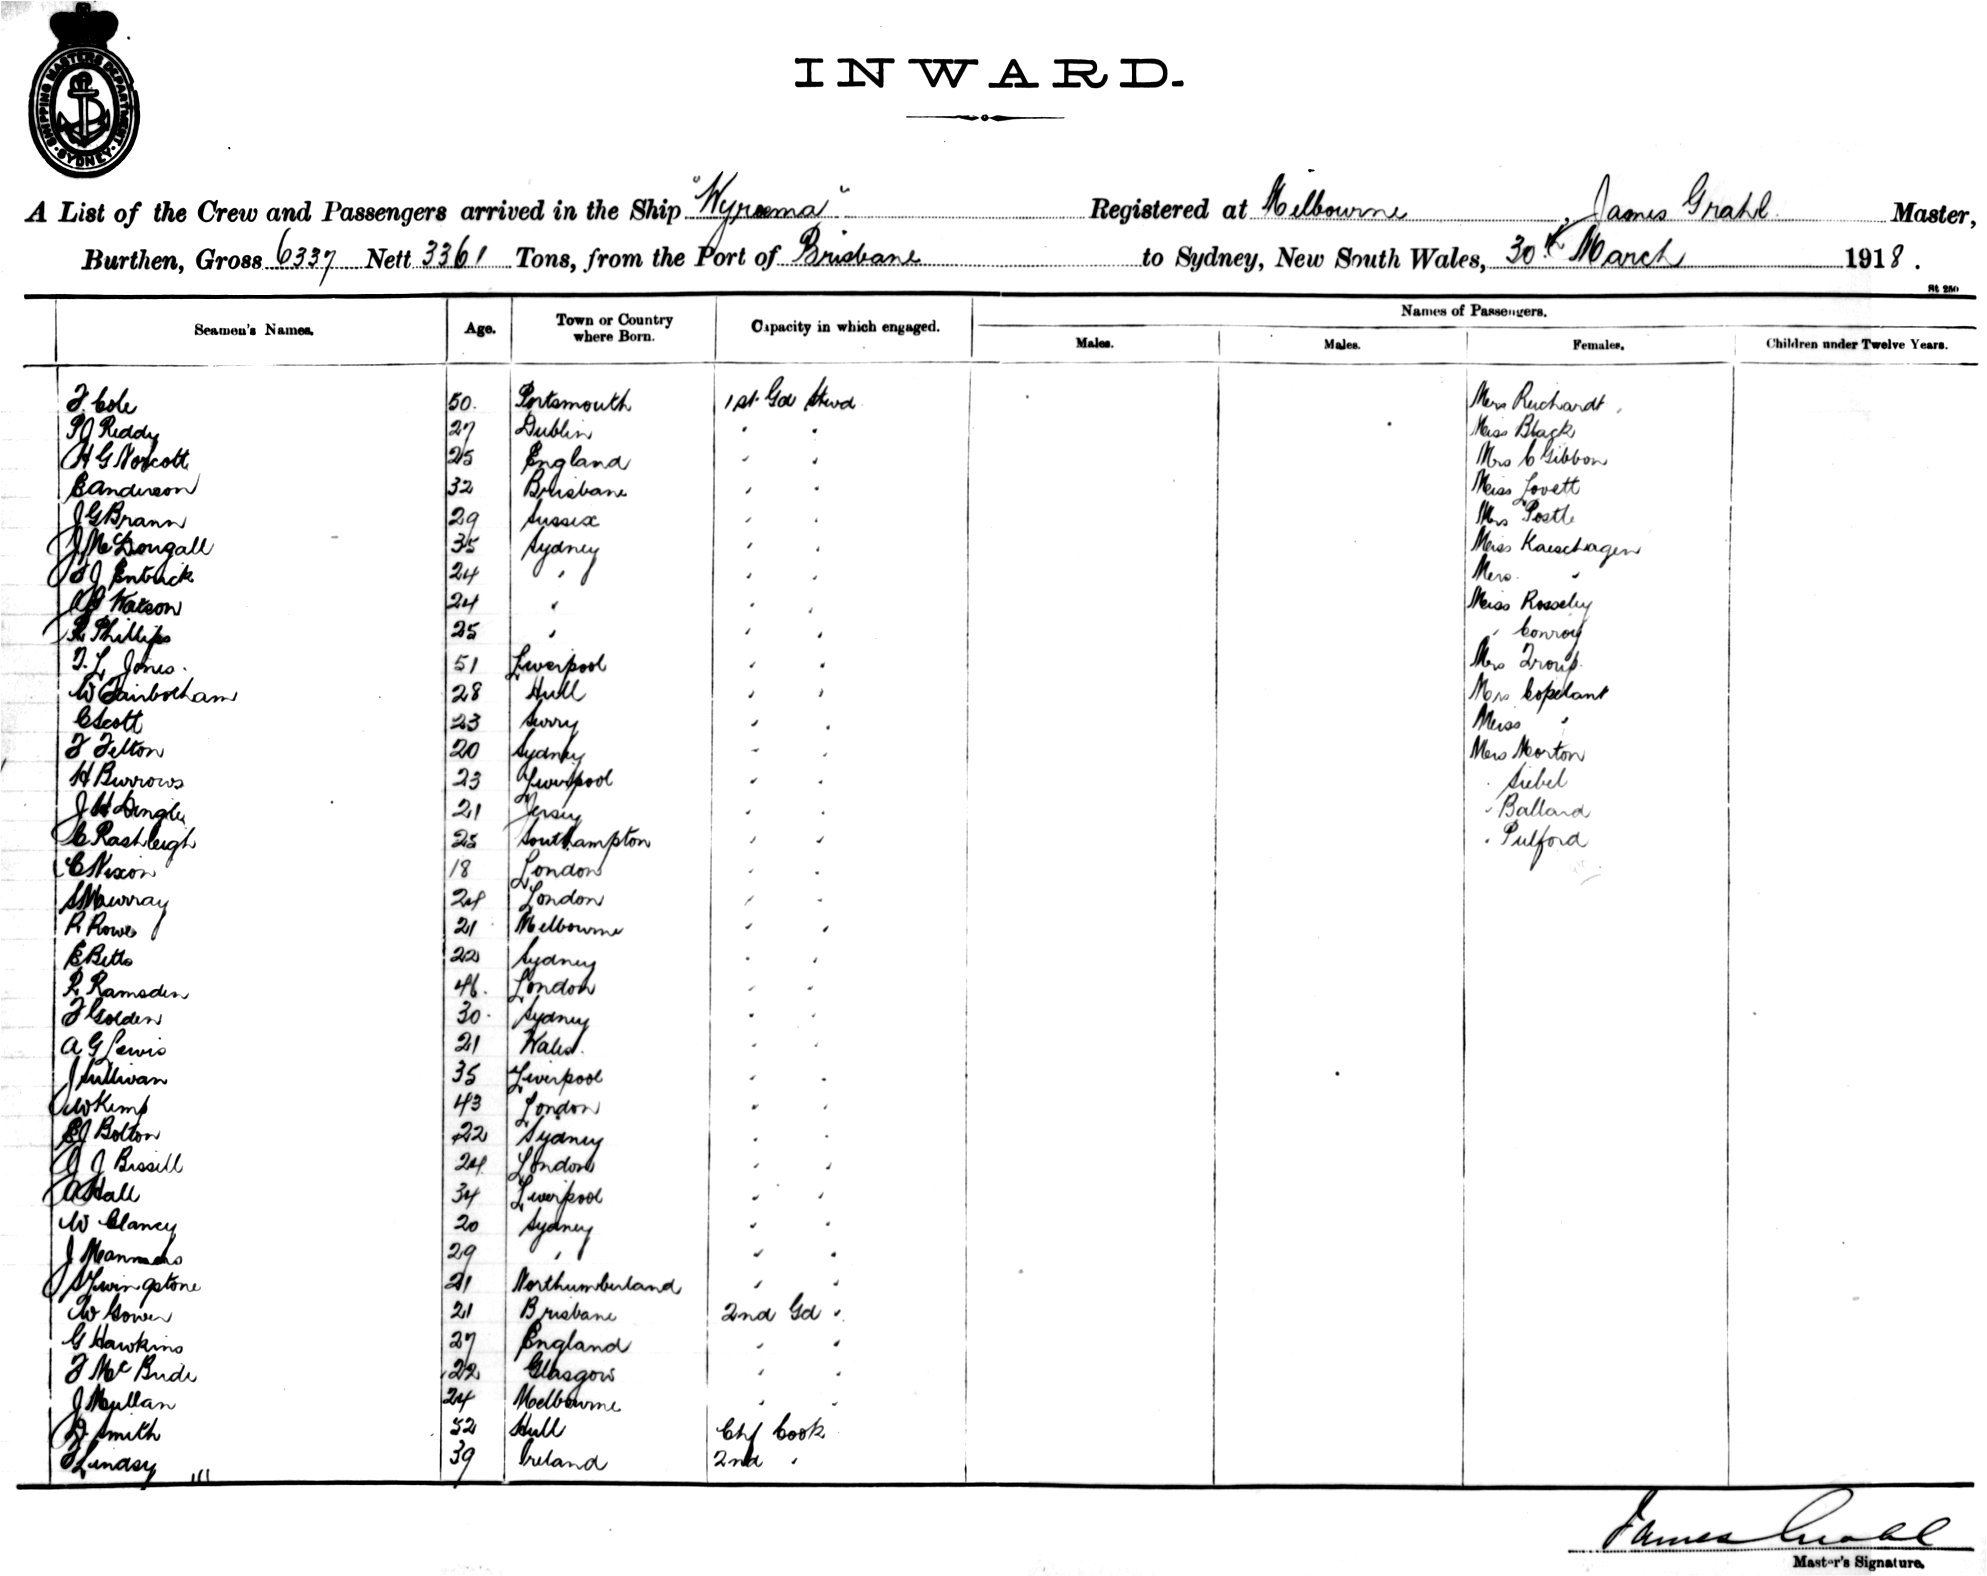 SHIPPING MASTERS DEPARTMENT
SYDNEY
INWARD.
A List of the Crew and Passengers arrived in the Ship "Wyreema" Registered at Melbourne, James Grahl Master,
Burthen, Gross 6337 Nett 3361 Tons, from the Port of Brisbane to Sydney, New South Wales, 30th March 1918.
St 250
Seamen's Names. Age. Town or Country where Born. Capacity in which engaged. Names of Passengers.
Males. Males. Females. Children under Twelve Years.
F Cole 50. Portsmouth 1st Gd Stwd Mrs Reichardt
P J Reddy 27 Dublin " " Miss Black
H G Norcott 25 England " " Mrs C Gibbon
E Anderson 32 Brisbane " " Miss Lovett
J G Brann 29 Sussex " " Mrs Postle
J McDougall 35 Sydney " " Miss Kaeschagen
S J Entwick 24 " " " Mrs "
Watson 24 " " " Miss Rosseby
R Phillips 25 " " " " Conroy
T. L. Jones. 51 Liverpool " " Mrs Troup
W Fairbotham 28 Hull " " Mrs Copelant
C Scott 23 Surry " " Miss "
F Felton 20 Sydney " " Mrs Morton
H Burrows 23 Liverpool " " " Siebel
J H Dingle 21 Jersey " " " Ballard
C Rashleigh 25 Southampton " " " Pulford
C Nixon 18 London " "
S Murray 24 London " "
R Rowe 21 Melbourne " "
E Betts 22 Sydney " "
R Ramsden 46. London " "
F Golden 30. Sydney " "
A G Lewis 21 Wales. " "
J Sullivan 35 Liverpool " "
W Kemp 43 London " "
E J Bolton 22 Sydney " "
J J Bissill 24 London " "
A Hall 34 Liverpool " "
W Clancy 20 Sydney " "
J 29 " " "
S Livingstone 21 Northumberland " "
W Gower 21 Brisbane 2nd Gd "
G Hawkins 27 England " "
F McBride 22 Glasgow " "
J Mullan 24 Melbourne " "
D Smith 52 Hull Chf Cook
T Lindsy 39 Ireland 2nd "
James Grahl
Master's Signature.